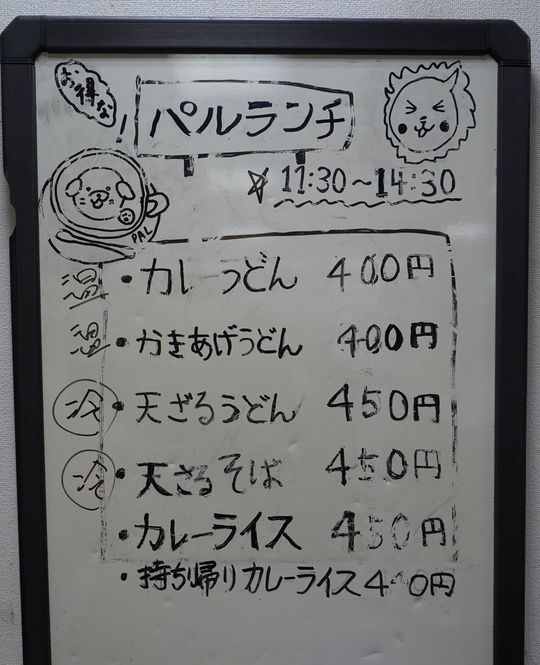 お得な!
パルランチ
☆ 11:30~14:30
PAL
温・カレーうどん 400円
温・かきあげうどん 400円
冷・天ざるうどん 450円
冷・天ざるそば 450円
・カレーライス 450円
・持ち帰りカレーライス